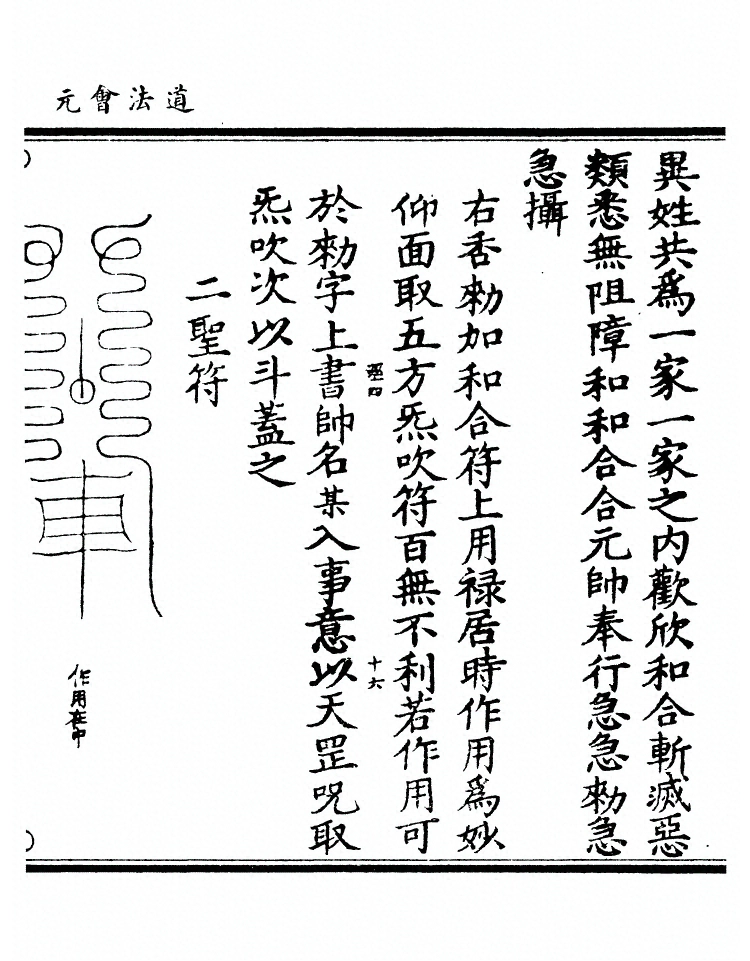 道法會元
異姓共爲一家一家之内歡欣和合斬滅惡
類悉無阻障和和合合元帥奉行急急勑急
急攝
右香勑加和合符上用禄居時作用爲妙
仰面取五方炁吹符百無不利若作用可
於勑字上書帥名某入事意以天罡咒取
炁吹次以斗蓋之
二聖符
車
作用在中
十六